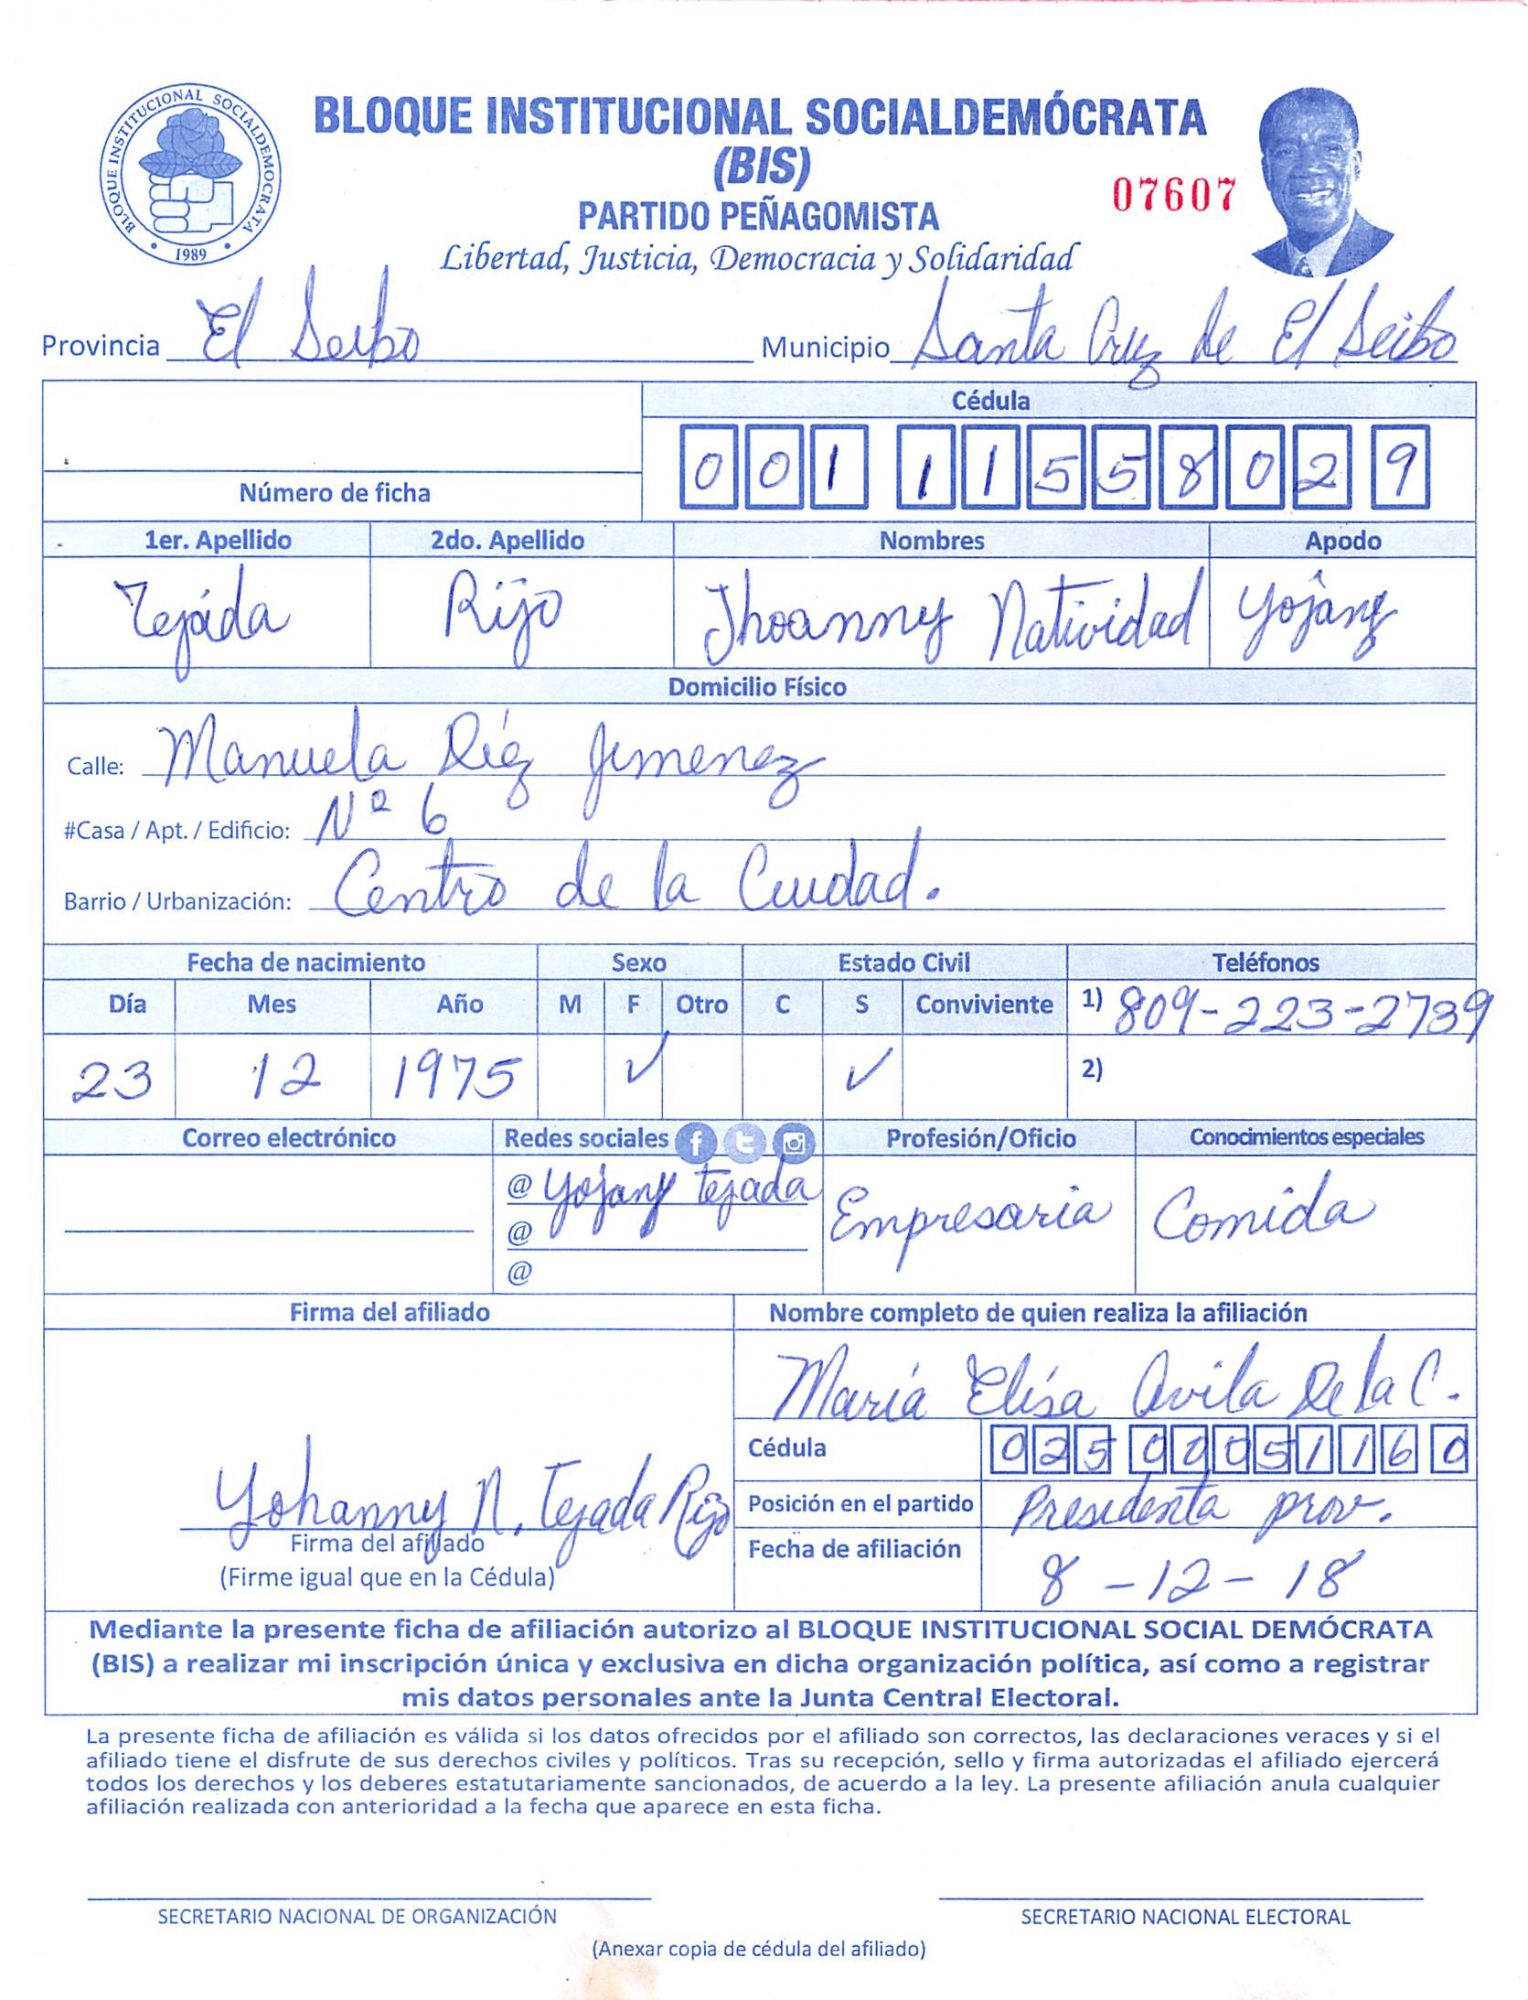 BLOQUE INSTITUCIONAL SOCIALDEMOCRATA
1989
BLOQUE INSTITUCIONAL SOCIALDEMÓCRATA
(BIS)
07607
PARTIDO PEÑAGOMISTA
Libertad, Justicia, Democracia y Solidaridad
Provincia El Seibo Municipio Santa Cruz de El Seibo
Cédula
0 0 1 1 1 5 5 8 0 2 9
Número de ficha
1er. Apellido 2do. Apellido Nombres Apodo
Tejáda Rijo Jhoanny Natividad Yojany
Domicilio Físico
Calle: Manuela Diéz Jimenez
#Casa / Apt. / Edificio: Nº 6
Barrio / Urbanización: Centro de la Ciudad.
Fecha de nacimiento Sexo Estado Civil Teléfonos
Día Mes Año M F Otro C S Conviviente 1) 809-223-2739
23 12 1975 ✓ ✓ 2)
Correo electrónico Redes sociales Profesión/Oficio Conocimientos especiales
@ Yojany tejada Empresaria Comida
@
@
Firma del afiliado Nombre completo de quien realiza la afiliación
María Elisa Avila De la C.
Cédula 0 2 5 0 0 0 5 1 1 6 0
Yohanny N. Tejada Rijo Posición en el partido Presidenta prov.
Firma del afiliado Fecha de afiliación 8-12-18
(Firme igual que en la Cédula)
Mediante la presente ficha de afiliación autorizo al BLOQUE INSTITUCIONAL SOCIAL DEMÓCRATA
(BIS) a realizar mi inscripción única y exclusiva en dicha organización política, así como a registrar
mis datos personales ante la Junta Central Electoral.
La presente ficha de afiliación es válida si los datos ofrecidos por el afiliado son correctos, las declaraciones veraces y si el
afiliado tiene el disfrute de sus derechos civiles y políticos. Tras su recepción, sello y firma autorizadas el afiliado ejercerá
todos los derechos y los deberes estatutariamente sancionados, de acuerdo a la ley. La presente afiliación anula cualquier
afiliación realizada con anterioridad a la fecha que aparece en esta ficha.
SECRETARIO NACIONAL DE ORGANIZACIÓN SECRETARIO NACIONAL ELECTORAL
(Anexar copia de cédula del afiliado)